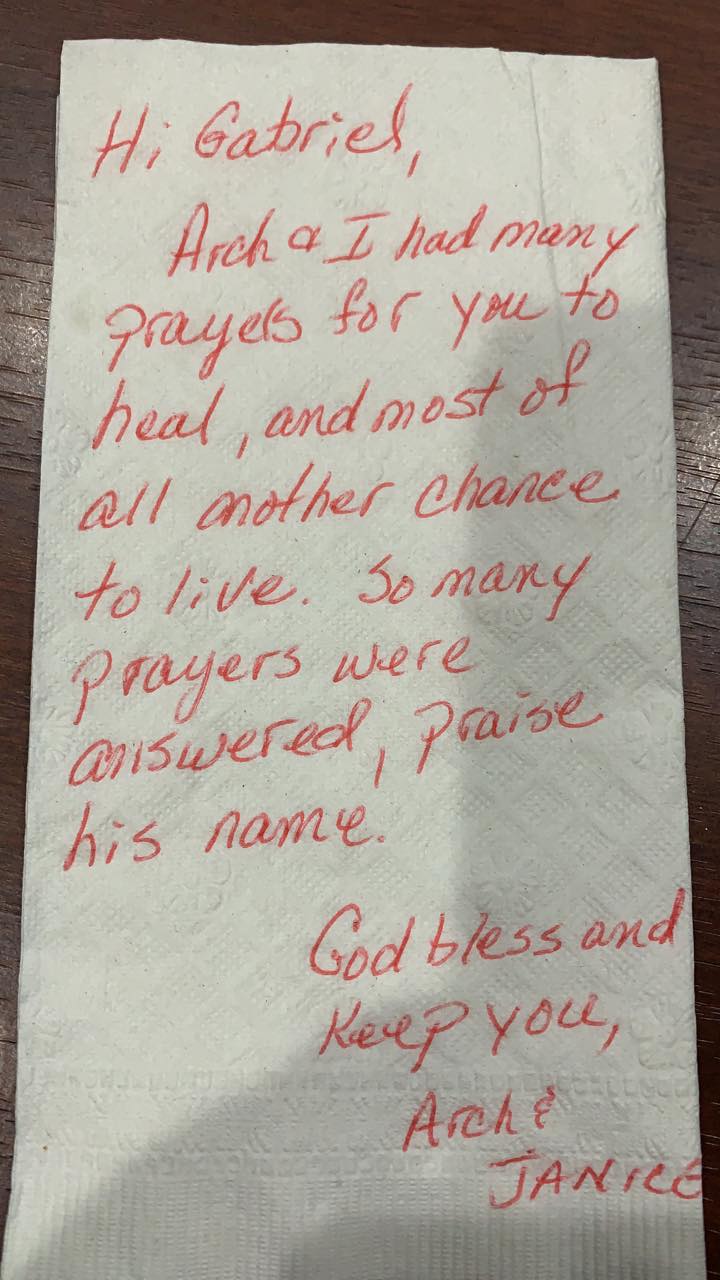 Hi Gabriel,
Arch & I had many
prayers for you to
heal, and most of
all another chance
to live. So many
prayers were
answered, praise
his name.
God bless and
Keep you,
Arch &
JANICE